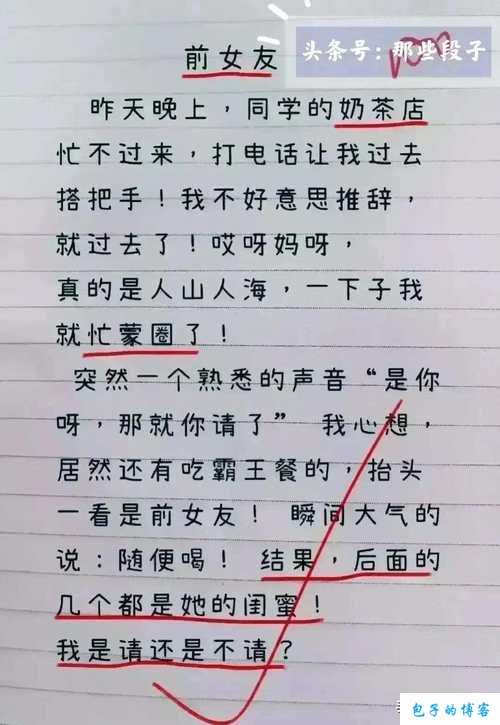 头条号：那些段子
前女友
昨天晚上，同学的奶茶店
忙不过来，打电话让我过去
搭把手！我不好意思推辞，
就过去了！哎呀妈呀，
真的是人山人海，一下子我
就忙蒙圈了！
突然一个熟悉的声音“是你
呀，那就你请了” 我心想，
居然还有吃霸王餐的，抬头
一看是前女友！ 瞬间大气的
说：随便喝！ 结果，后面的
几个都是她的闺蜜！
我是请还是不请？
包子的博客